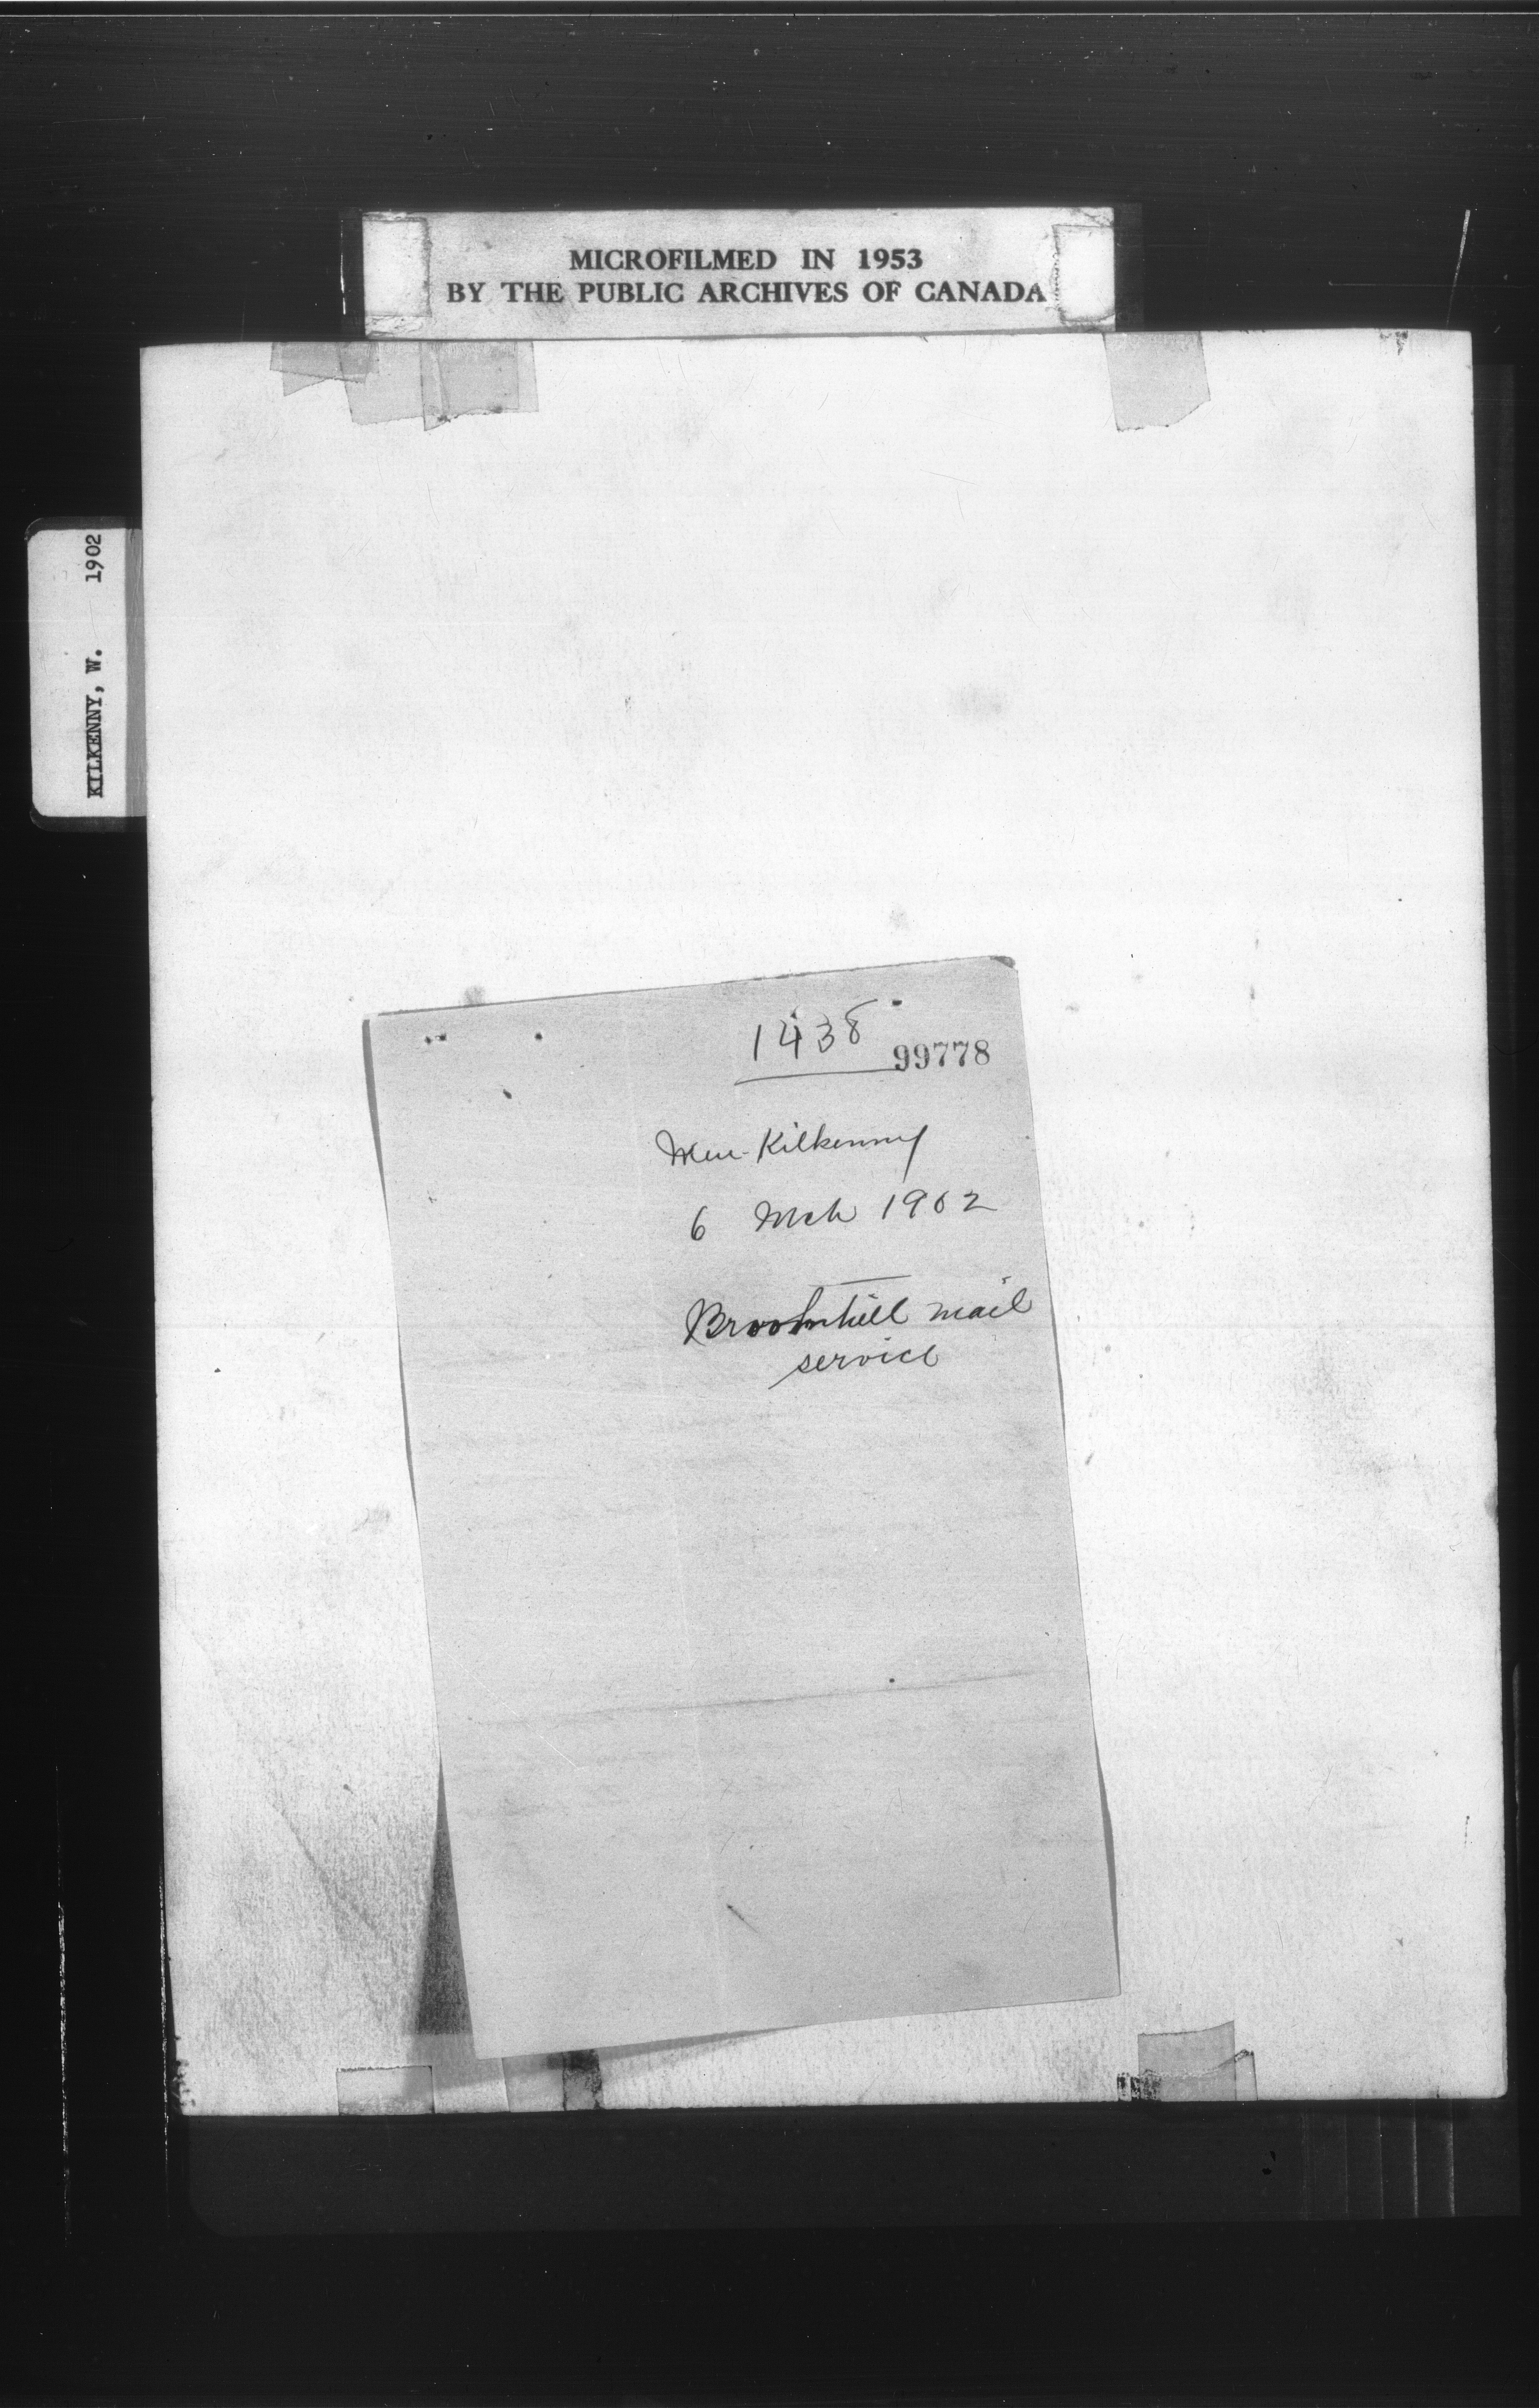 MICROFILMED IN 1953
BY THE PUBLIC ARCHIVES OF CANADA
KILKENNY, W. 1902
1438
99778
Wm Kilkenny
6 Mch 1902
Broomhill mail
service